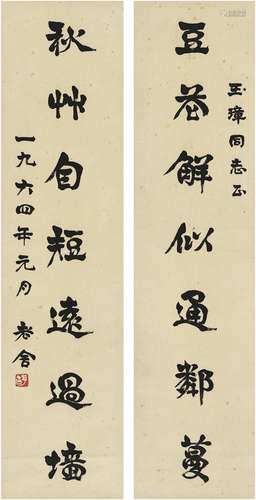 玉璋同志正
豆花解似通鄰蔓
秋艸自短遠過墻
一九六四年元月 老舍